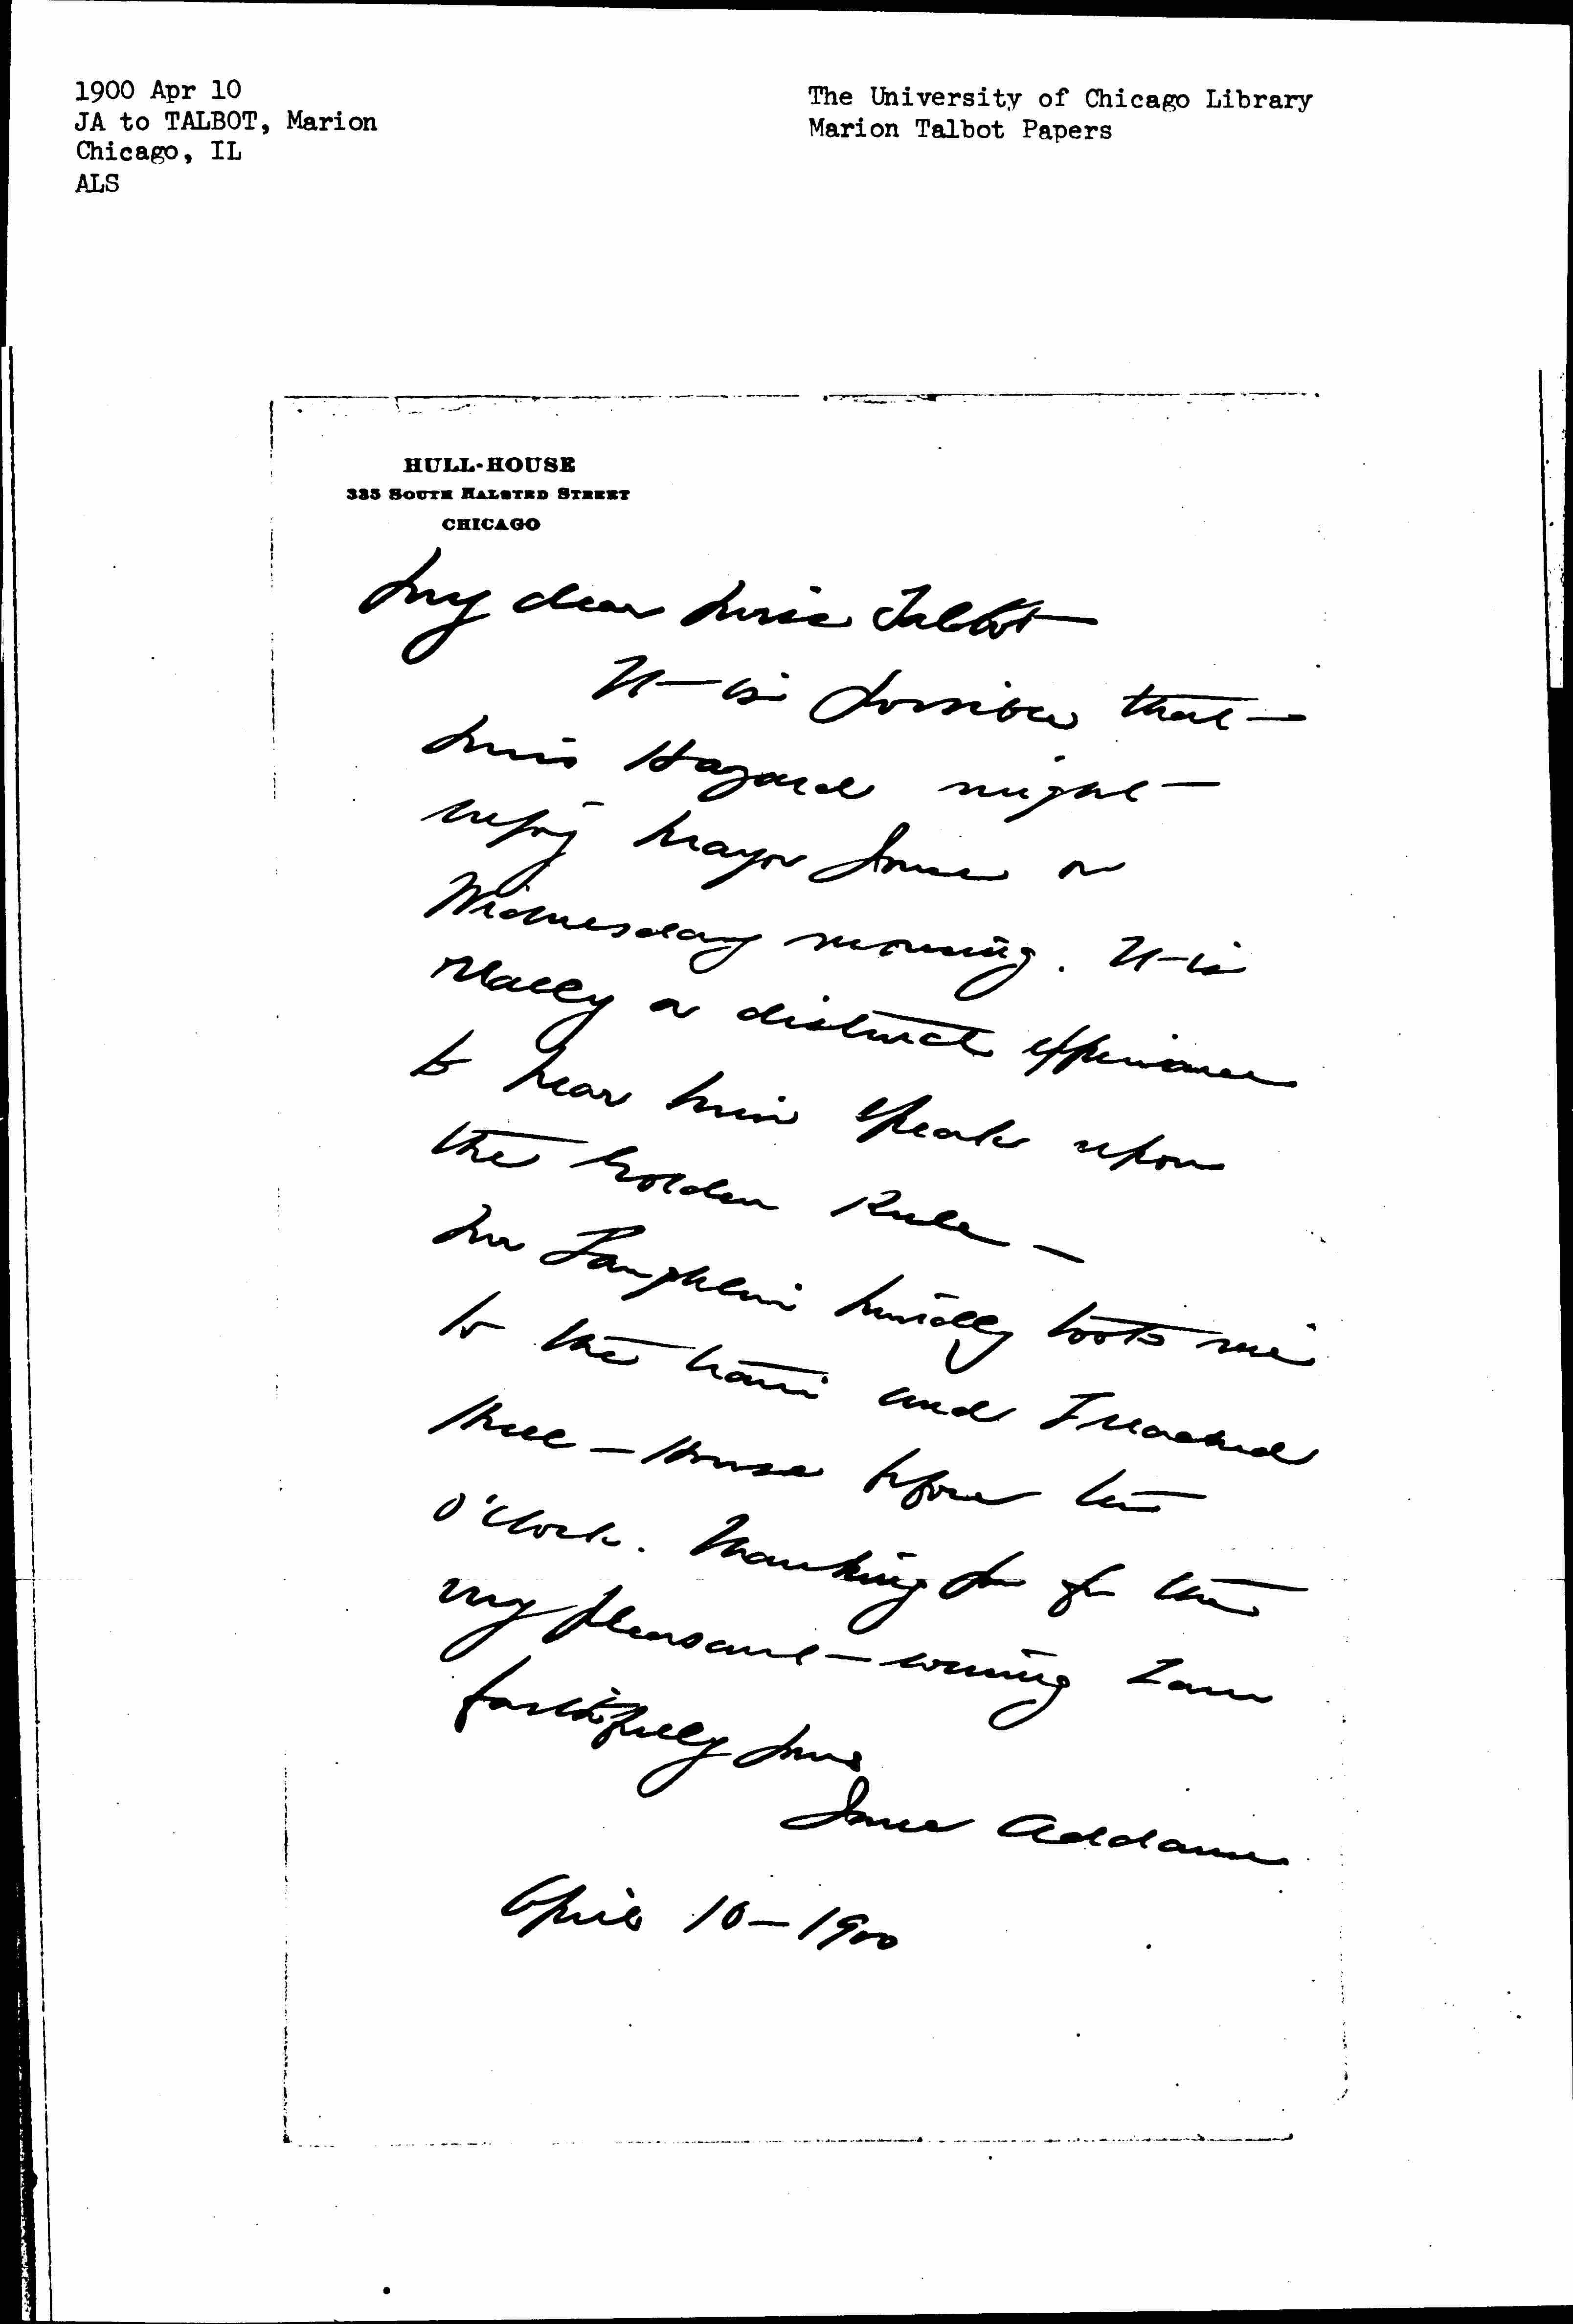 1900 Apr 10
JA to TALBOT, Marion
Chicago, IL
ALS
The University of Chicago Library
Marion Talbot Papers
HULL-HOUSE
335 SOUTH HALSTED STREET
CHICAGO
My dear Miss Talbot
It is possible that
Miss Hazard might
enjoy Mayor Jones on
Wednesday morning. It is
really a distinct experience
to hear him speak upon
the Golden Rule –
Mr Laughlin kindly took me
to the train and I reached
Hull-House before ten
o'clock. Thanking you for the
very pleasant evening I am
faithfully yours
Jane Addams
April 10 – 1900